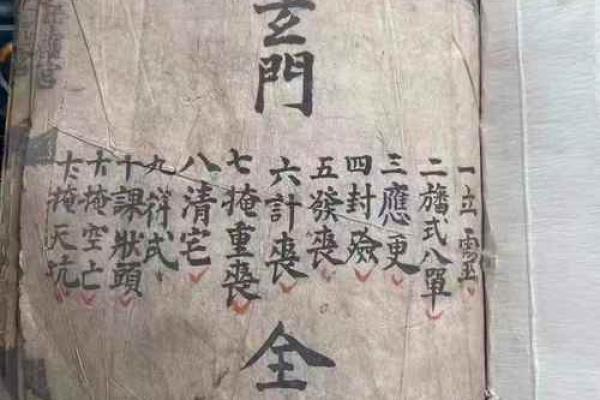 玄門
一立靈
二旛式八單
三應更
四封殮
五發喪
六計喪
七掩重喪
八清宅
九祥式
十課狀頭
十掩空亡
十掩天坑
全